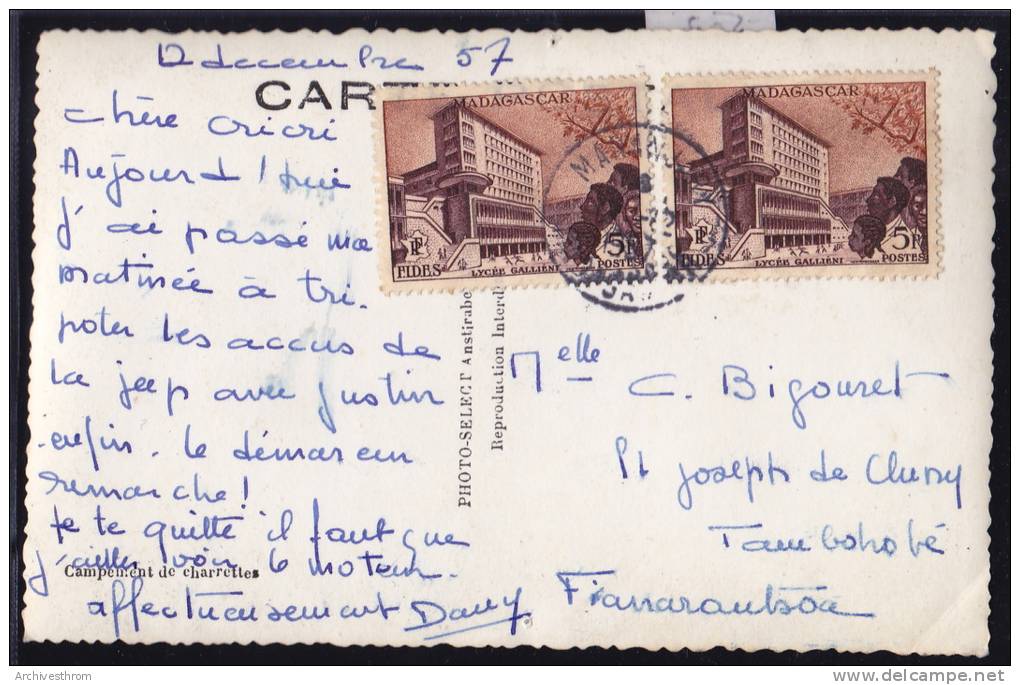 12 decembre 57
CART
chère cricri
Aujourd'hui
j'ai passé ma
matinée à tri-
poter les accus de
la jeep avec Justin
enfin le démareur
remarche!
je te quitte il faut que
j'aille voir le moteur.
affectueusement Dany
Campement de charrettes
PHOTO-SELECT Anstirabe
Reproduction Interd
MADAGASCAR
RF
FIDES
LYCÉE GALLIÉNI
5F
POSTES
MADAGASCAR
RF
FIDES
LYCÉE GALLIÉNI
5F
POSTES
Melle
C. Bigouret
St Joseph de Cluny
Tambohobé
Fianarantsoa
Archivesthrom
delcampe.net